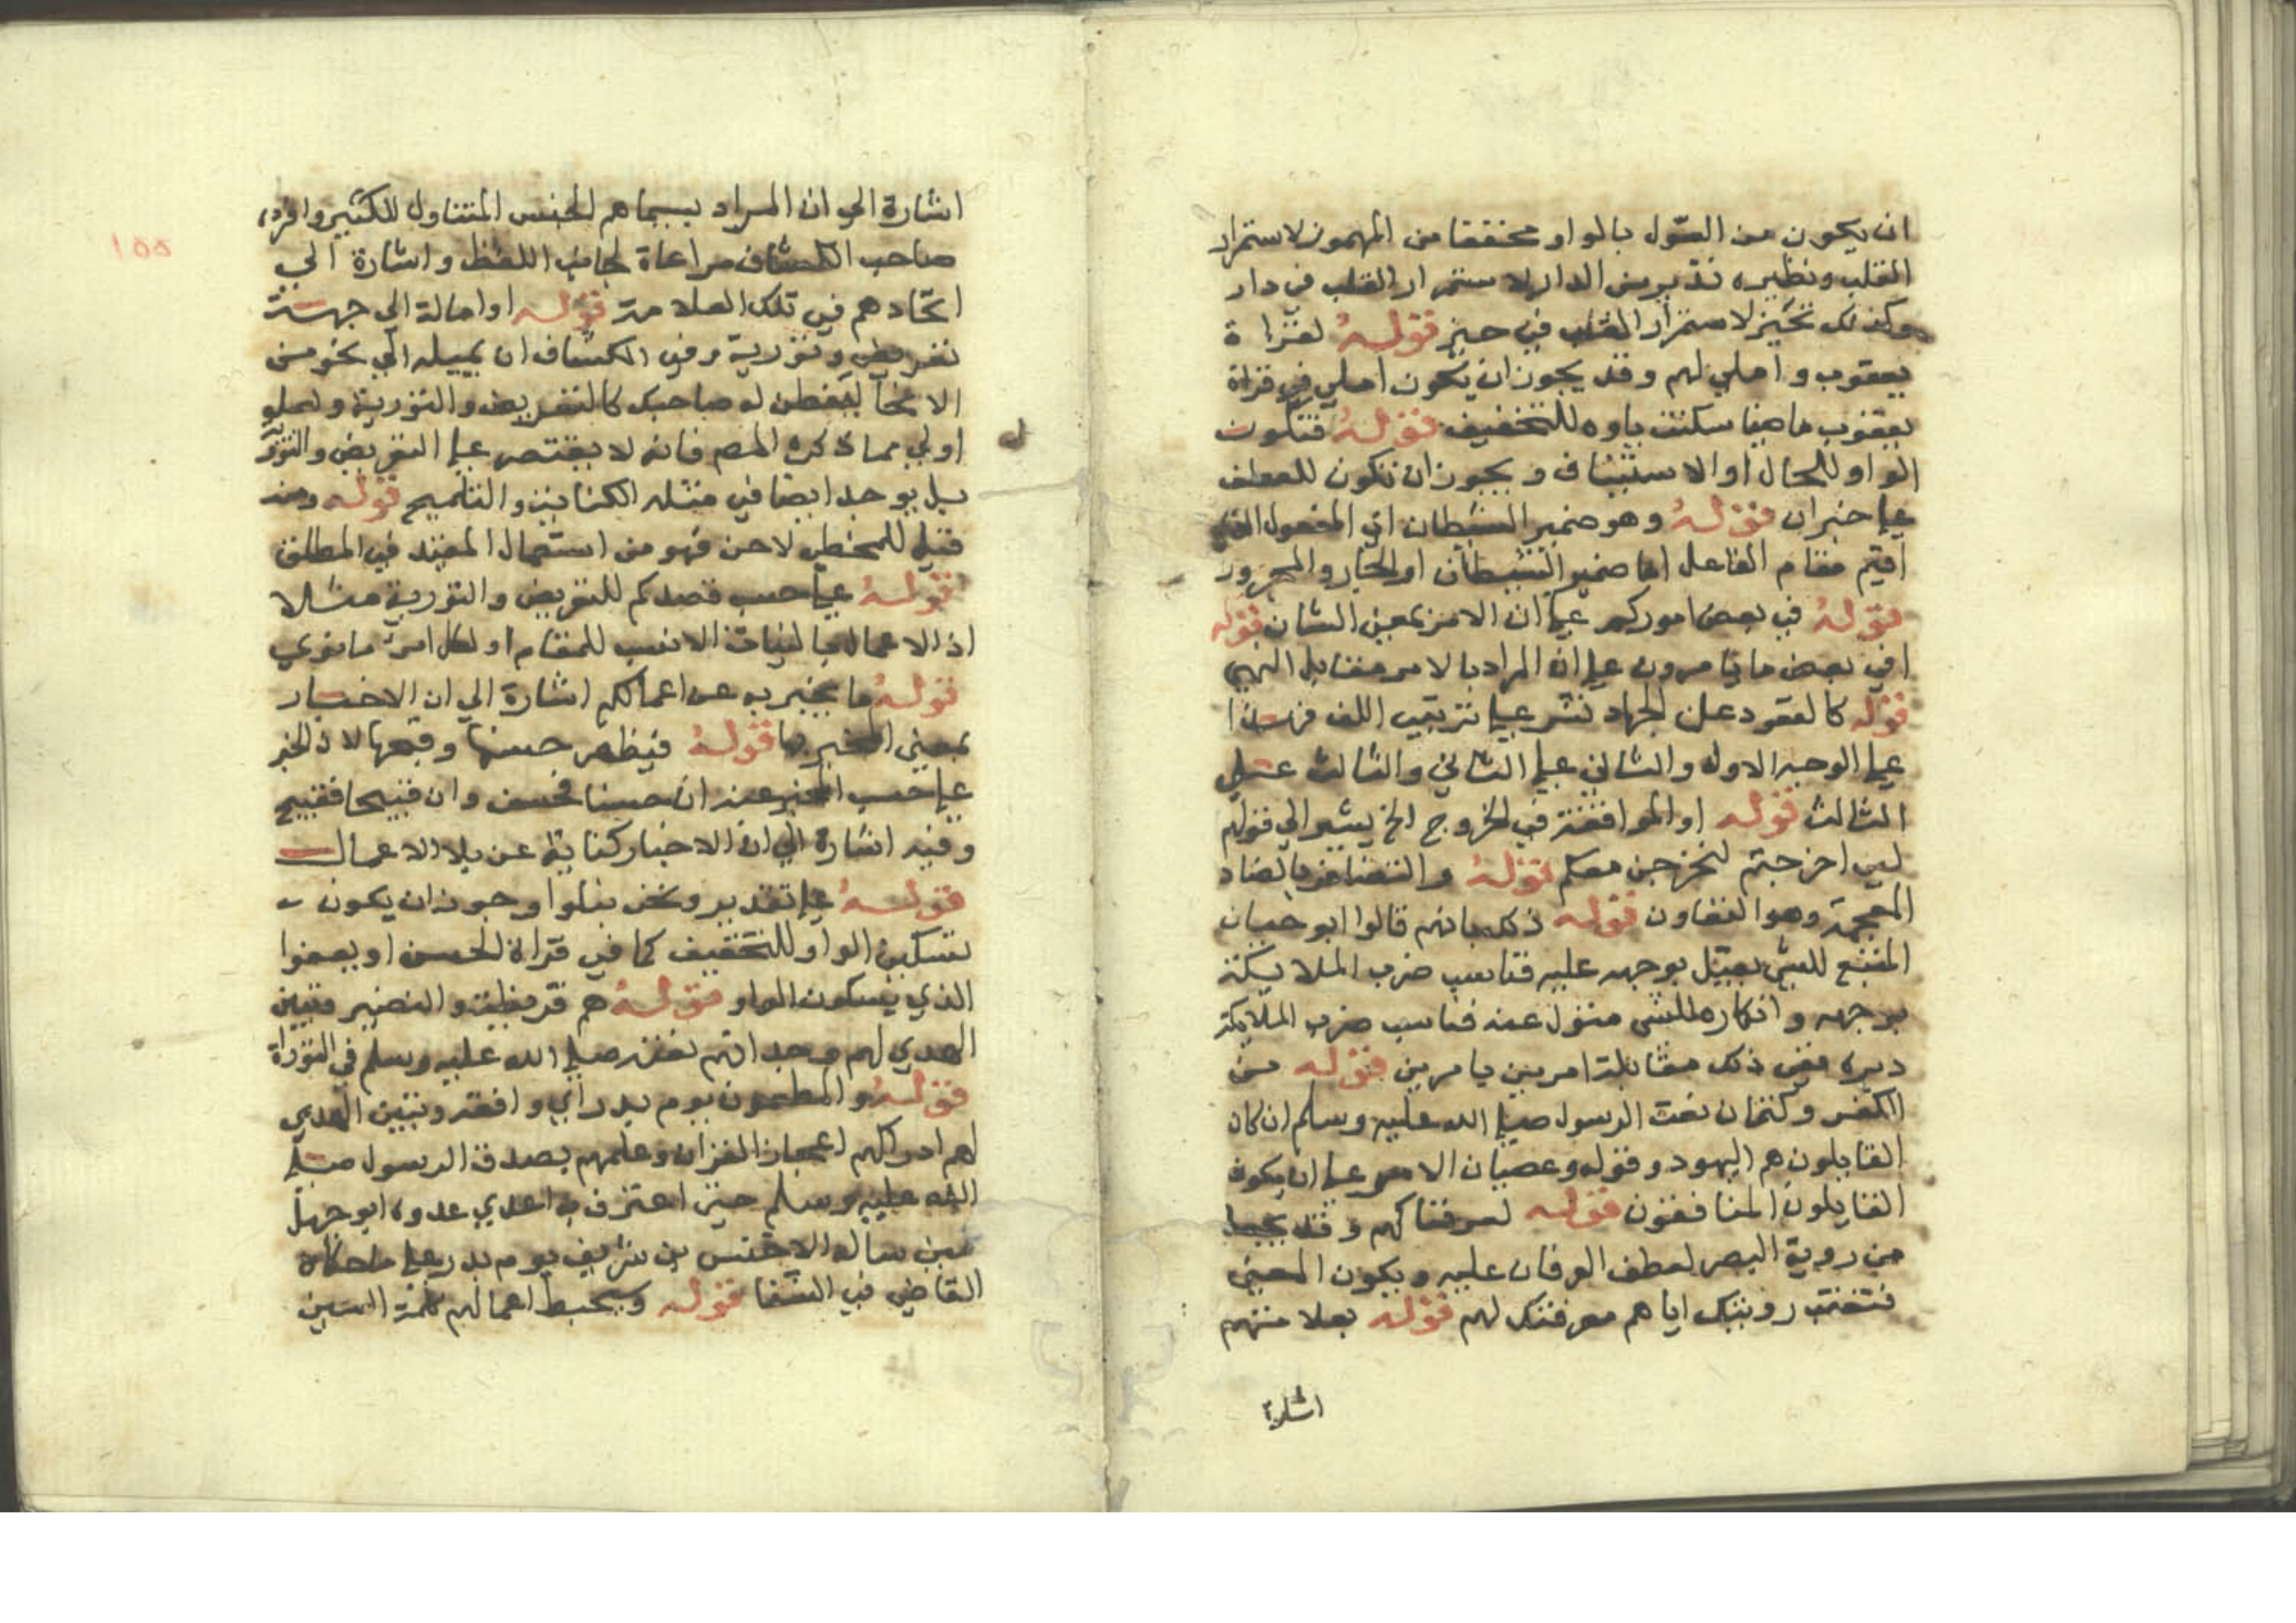 ان يكون من السّول بالواو مخففا من المهموز لاستمرار
القلب ونظيره تدير من الدار لاستمرار القلب في دار
وكذلك تحيز لاستمرار القلب في حيز قوله لقراة
يعقوب واملي لهم وقد يجوز ان يكون املي في قراة
يعقوب ماضيا سكنت ياوه للتخفيف قوله فتكون
الواو للحال او الاستيناف ويجوز ان تكون للعطف
علي خبر ان قوله وهو ضمير الشيطان اي المفعول الذي
اقيم مقام الفاعل اما ضمير الشيطان او الجار والمجرور
قوله في بعض اموركم علي ان الامر بمعني الشان قوله
او في بعض ما تامرون علي ان المراد بالامر مقابل النهي
قوله كالقعود عن الجهاد نشر علي ترتيب اللف فهذا
علي الوجه الاول والثاني علي الثاني والثالث علي
الثالث قوله او الموافقة في الخروج الخ يشير الي قولهم
لين اخرجتم لنخرجن معكم قوله والتضافر بالضاد
المعجمة وهو التعاون قوله ذلك بانهم قالوا ابو حيان
المتبع للشي يقبل بوجهه عليه فناسب ضرب الملايكة
بوجهه وانكاره للشي متول عنه فناسب ضرب الملايكة
دبره ففي ذلك مقابلة امرين بامرين قوله من
الكفر وكتمان نعت الرسول صلي الله عليه وسلم ان كان
القايلون هم اليهود وقوله وعصيان الامر علي ان يكون
القايلون المنافقون قوله لعرفناكهم وقد يجعل
من روية البصر لعطف العرفان عليه ويكون المعني
فتعقب رويتك اياهم معرفتك لهم قوله بعلامتهم
اشارة
١٥٥
اشارة الي ان المراد بسيماهم الجنس المتناول للكثير وافرده
صاحب الكشاف مراعاة لجانب اللفظ واشارة الي
اتحادهم في تلك العلامة قوله او امالة الي جهة
تعريض وتورية وفي الكشاف ان تميله الي نحو من
الانحا ليفطن له صاحبك كالتعريض والتورية وهو
اولي مما ذكره المص فانه لا يقتصر علي التعريض والتورية
بل يوجد ايضا في مثله الكناية والتلميح قوله ومنه
قيل للمخطي لاحن فهو من استعمال المقيد في المطلق
قوله علي حسب قصدكم للتعريض والتورية مثلا
اذ الاعمال بالنيات الانسب للمقام او لكل امرئ ما نوي
قوله ما يخبر به عن اعمالكم اشارة الي ان الاخبار
بمعني المخبر بها قوله فيظهر حسنها وقبحها لان الخبر
علي حسب المخبر عنه ان حسنا فحسن وان قبيحا فقبيح
وفيه اشارة الي ان الاخبار كناية عن بلا الاعمال
قوله علي تقدير ونحن نبلوا وجوز ان يكون
تسكين الواو للتخفيف كما في قراة الحسن او يعفوا
الذي بسكون الواو قوله هم قريظة والنضير فتبين
الهدي لهم وجدانهم نعته صلي الله عليه وسلم في التوراة
قوله والمطعمون يوم بدر اي وافقه وتبين الهدي
لهم ادراكهم اعجاز القران وعلمهم بصدق الرسول صلي
الله عليه وسلم حين اعترف به اعدي عدوه ابو جهل
حين ساله الاخنس بن شريف يوم بدر علي ما حكاه
القاضي في الشفا قوله وسيحبط اعمالهم كلمة السين